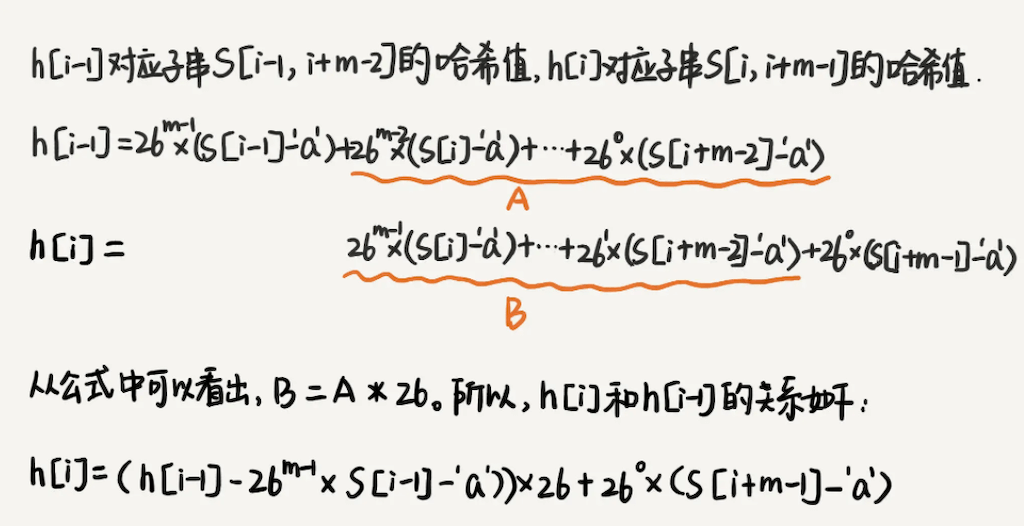 h[i-1]对应子串S[i-1, i+m-2]的哈希值,h[i]对应子串S[i,i+m-1]的哈希值.
h[i-1]=26^{m-1}×(S[i-1]-'a')+26^{m-2}×(S[i]-'a')+⋯+26^0×(S[i+m-2]-'a')
A
h[i]= 26^{m-1}×(S[i]-'a')+⋯+26^1×(S[i+m-2]-'a')+26^0×(S[i+m-1]-'a')
B
从公式中可以看出,B=A*26。所以,h[i]和h[i-1]的关系如下:
h[i]=(h[i-1]-26^{m-1}×S[i-1]-'a'))×26+26^0×(S[i+m-1]-'a')